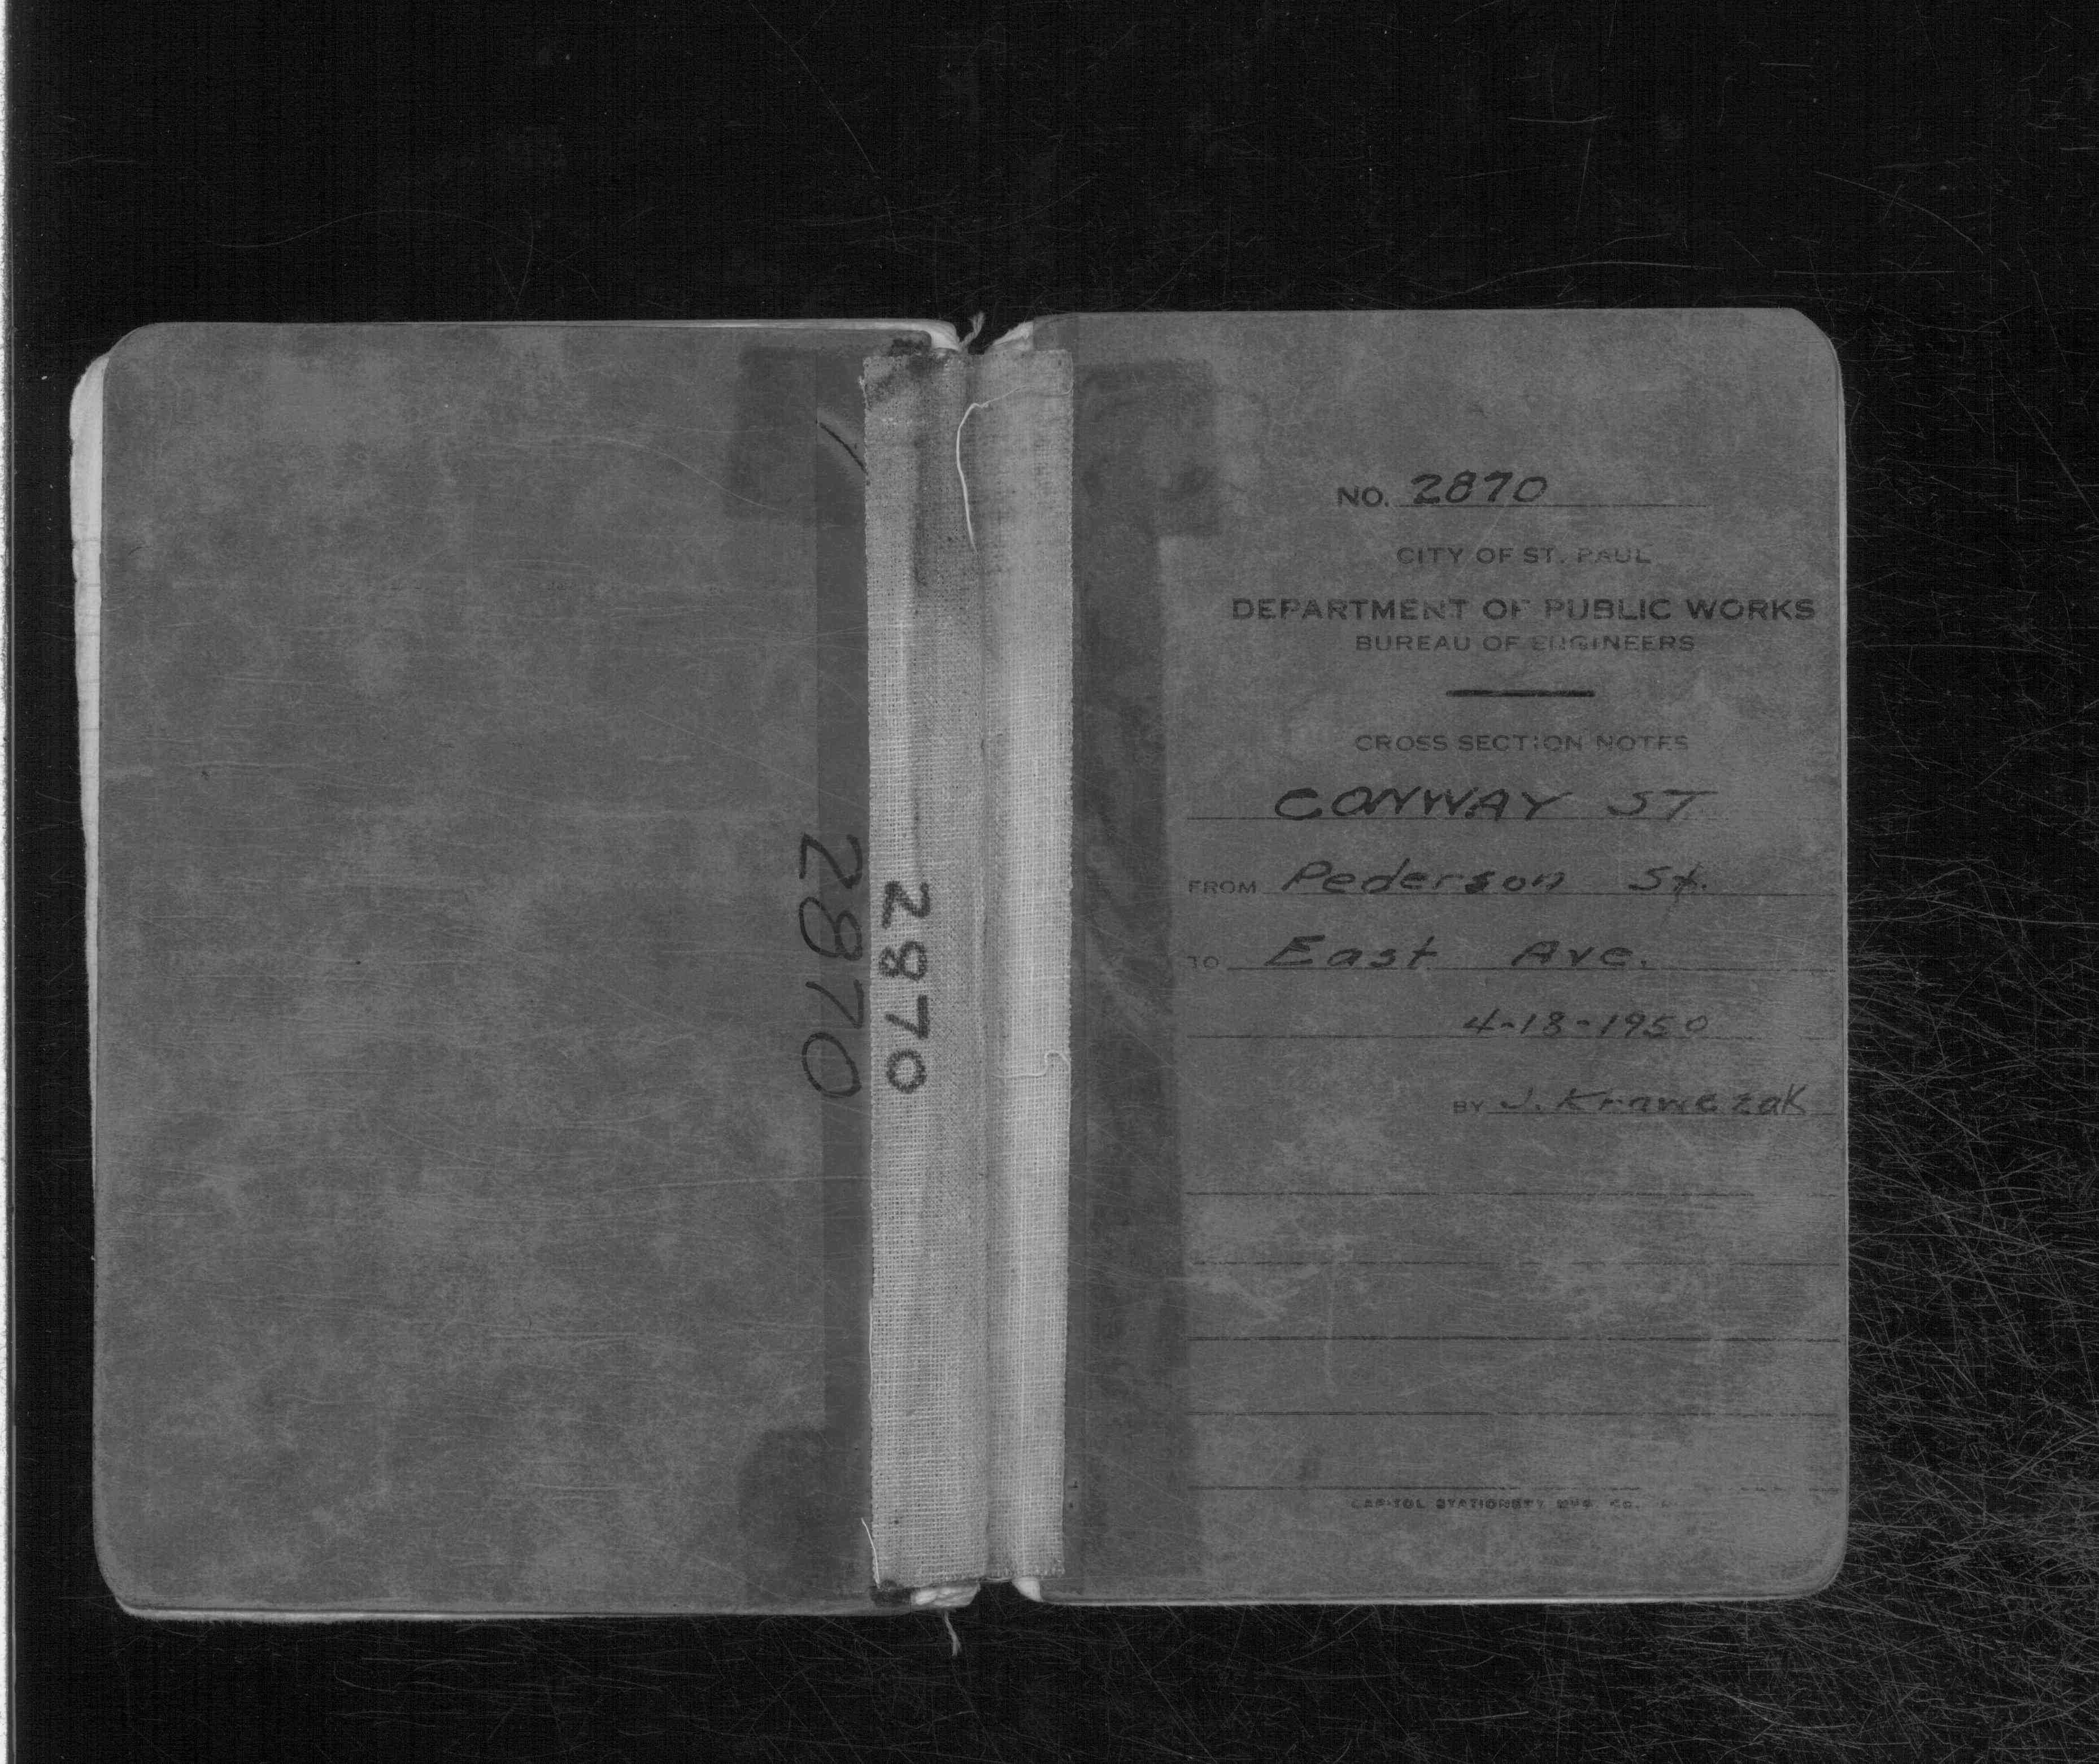 2870
2870
NO. 2870
CITY OF ST. PAUL
DEPARTMENT OF PUBLIC WORKS
BUREAU OF ENGINEERS
CROSS SECTION NOTES
CONWAY ST
FROM Pederson St.
TO East Ave.
4-18-1950
BY J. Krawczak
CAPITOL STATIONERY MFG. CO.